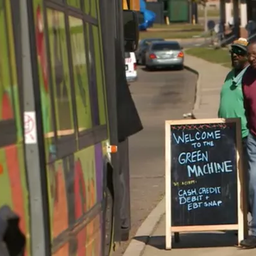 WELCOME
TO THE
GREEN
MACHINE
CASH CREDIT
DEBIT +
EBT SNAP